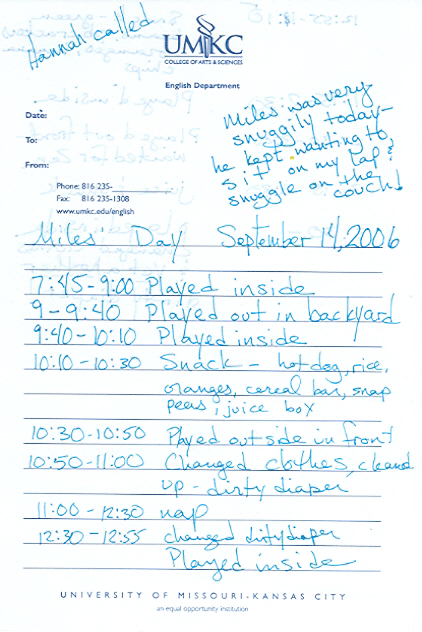 Hannah called
UMKC
COLLEGE OF ARTS & SCIENCES
English Department
Miles was very
snuggily today-
he kept wanting to
sit on my lap &
snuggle on the
couch!
Date:
To:
From:
Phone: 816 235-
Fax: 816 235-1308
www.umkc.edu/english
Miles' Day September 14, 2006
7:45-9:00 Played inside
9-9:40 Played out in backyard
9:40-10:10 Played inside
10:10-10:30 Snack - hotdog, rice,
oranges, cereal bar, snap
peas, juice box
10:30-10:50 Played outside in front
10:50-11:00 Changed clothes, cleaned
up - dirty diaper
11:00-12:30 nap
12:30-12:55 changed dirty diaper
Played inside
UNIVERSITY OF MISSOURI-KANSAS CITY
an equal opportunity institution